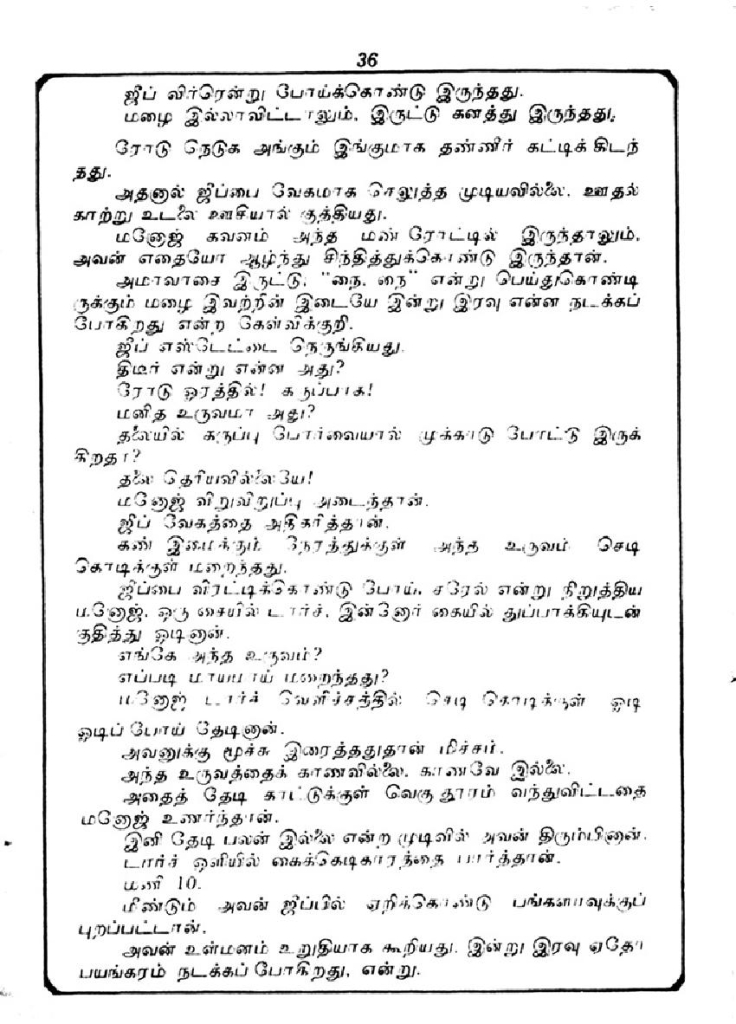 36
ஜீப் விர்ரென்று போய்க்கொண்டு இருந்தது.
மழை இல்லாவிட்டாலும், இருட்டு கனத்து இருந்தது.
ரோடு நெடுக அங்கும் இங்குமாக தண்ணீர் கட்டிக் கிடந்
தது.
அதனால் ஜீப்பை வேகமாக செலுத்த முடியவில்லை. ஊதல்
காற்று உடலை ஊசியால் குத்தியது.
மனோஜ் கவனம் அந்த மண் ரோட்டில் இருந்தாலும்,
அவன் எதையோ ஆழ்ந்து சிந்தித்துக்கொண்டு இருந்தான்.
அமாவாசை இருட்டு; "நை, நை" என்று பெய்துகொண்டி
ருக்கும் மழை இவற்றின் இடையே இன்று இரவு என்ன நடக்கப்
போகிறது என்ற கேள்விக்குறி.
ஜீப் எஸ்டேட்டை நெருங்கியது.
திடீர் என்று என்ன அது?
ரோடு ஓரத்தில்! கருப்பாக!
மனித உருவமா அது?
தலையில் கருப்பு போர்வையால் முக்காடு போட்டு இருக்
கிறதா?
தலை தெரியவில்லையே!
மனோஜ் விறுவிறுப்பு அடைந்தான்.
ஜீப் வேகத்தை அதிகரித்தான்.
கண் இமைக்கும் நேரத்துக்குள் அந்த உருவம் செடி
கொடிக்குள் மறைந்தது.
ஜீப்பை விரட்டிக்கொண்டு போய், சரேல் என்று நிறுத்திய
மனோஜ், ஒரு கையில் டார்ச், இன்னோர் கையில் துப்பாக்கியுடன்
குதித்து ஓடினான்.
எங்கே அந்த உருவம்?
எப்படி மாயமாய் மறைந்தது?
மனோஜ் டார்ச் வெளிச்சத்தில் செடி கொடிக்குள் ஓடி
ஓடிப் போய் தேடினான்.
அவனுக்கு மூச்சு இரைத்ததுதான் மிச்சம்.
அந்த உருவத்தைக் காணவில்லை. காணவே இல்லை.
அதைத் தேடி காட்டுக்குள் வெகு தூரம் வந்துவிட்டதை
மனோஜ் உணர்ந்தான்.
இனி தேடி பலன் இல்லை என்ற முடிவில் அவன் திரும்பினான்.
டார்ச் ஒளியில் கைக்கெடிகாரத்தை பார்த்தான்.
மணி 10.
மீண்டும் அவன் ஜீப்பில் ஏறிக்கொண்டு பங்களாவுக்குப்
புறப்பட்டான்.
அவன் உள்மனம் உறுதியாக கூறியது. இன்று இரவு ஏதோ
பயங்கரம் நடக்கப் போகிறது, என்று.